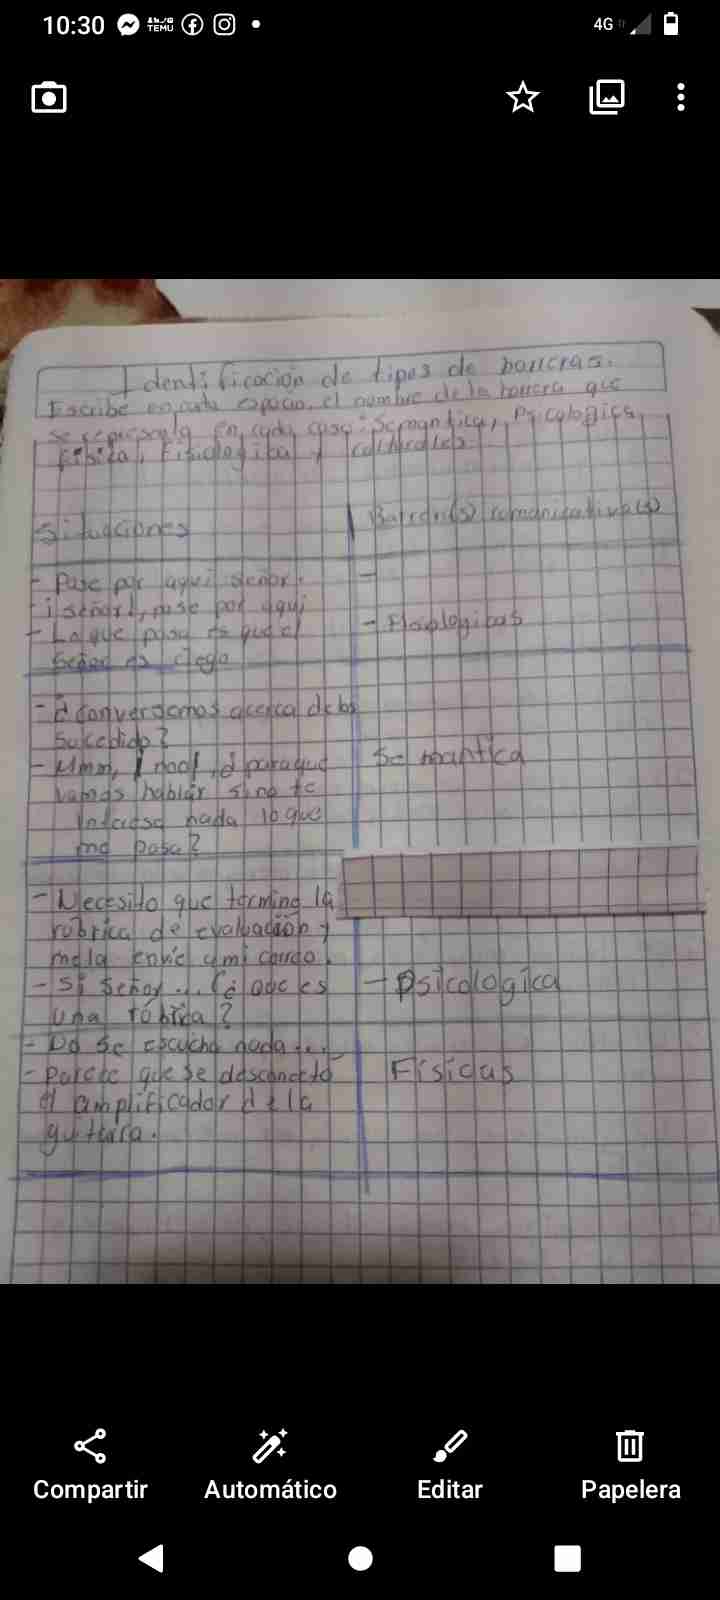 10:30 TEMU 4G
Identificación de tipos de barreras.
Escribe en cada espacio, el nombre de la barrera que
se representa en cada caso: Semantica, Psicologica,
Fisica, Fisiologica y culturales
Situaciones
Barrera(s) comunicativa(s)
- Pase por aqui señor.
- ¡señor!, pase por aqui
- Lo que pasa es que el
señor es ciego
-
- Fisiologicas
- ¿conversemos acerca de lo
sucedido?
- Mmm, ¡noo!, ¿para que
vamos hablar si no te
interesa nada lo que
me pasa?
Semantica
- Necesito que termine la
rúbrica de evaluación y
me la envíe a mi correo.
- Si señor... (¿Que es
una rúbrica?
- psicologica
- No se escucha nada...
- Parece que se desconectó
el amplificador de la
guitarra.
Físicas
Compartir Automático Editar Papelera